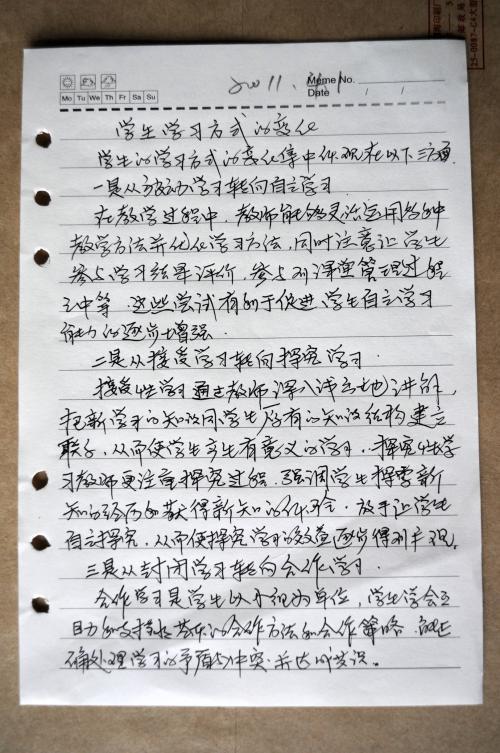 Meme No.
Date / /
Mo Tu We Th Fr Sa Su
学生学习方式的变化
学生的学习方式的变化集中体现在以下三方面
一是从被动学习转向自主学习.
在教学过程中，教师能够灵活运用各种
教学方法并优化学习方法，同时注意让学生
参与学习结果评价，参与对课堂管理过程
之中等.这些尝试有利于促进学生自主学习
能力的逐步增强.
二是从接受学习转向探究学习.
接受性学习通过教师深入浅出地讲解，
把新学习的知识同学生原有的知识结构建立
联系，从而使学生产生有意义的学习.探究性学
习教师更注重探究过程，强调学生探索新
知的经历和获得新知的体验，放手让学生
自主探究，从而使探究学习的效益逐步得到实现.
三是从封闭学习转向合作学习.
合作学习是学生以小组为单位，学生学会互
助和支持共享的合作方法和合作策略，能正
确处理学习的矛盾与冲突，并达成共识。